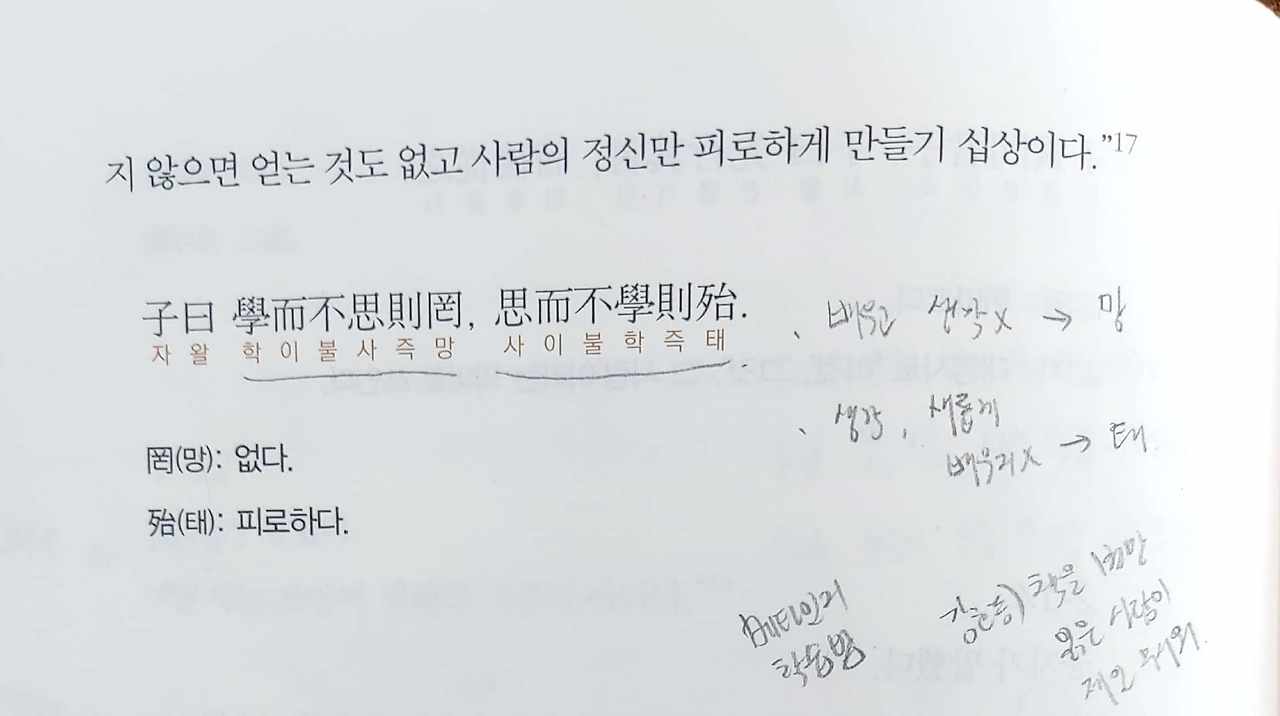 지 않으면 얻는 것도 없고 사람의 정신만 피로하게 만들기 십상이다.”17
子曰 學而不思則罔, 思而不學則殆.
자 왈 학 이 불 사 즉 망 사 이 불 학 즉 태
罔(망): 없다.
殆(태): 피로하다.
、배우고 생각X → 망
、생각, 새롭게
배우지X → 태
메타인지
학습법
책을 1권만
읽은 사람이
제일 무서워.